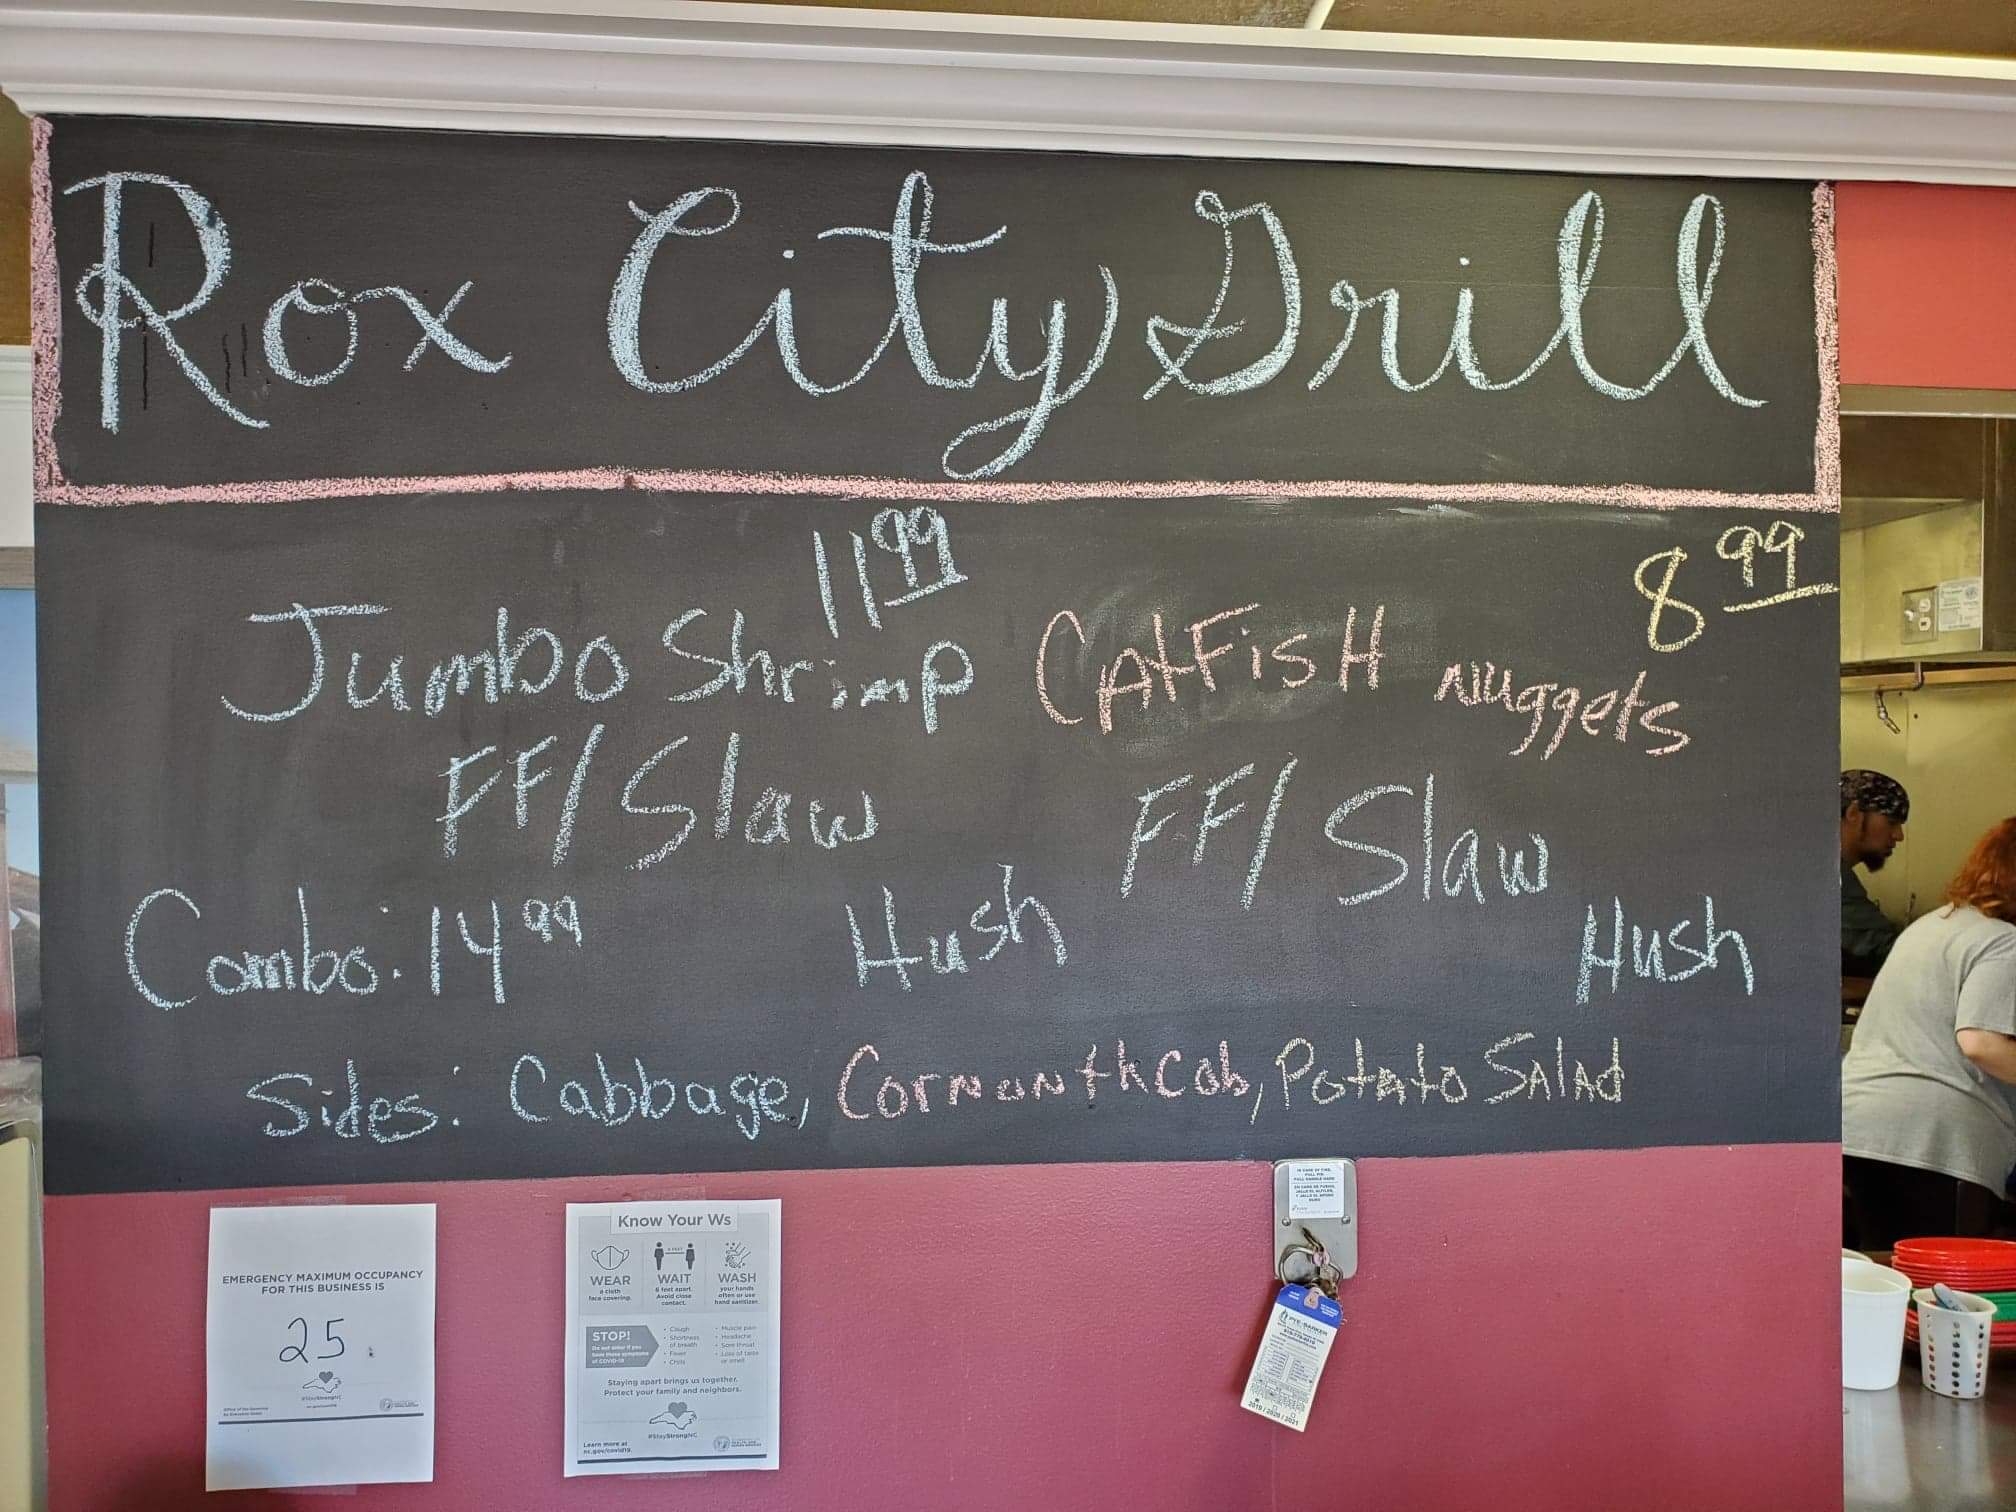 Rox City Grill
11.99
8.99
Jumbo Shrimp
CAtFisH Nuggets
FF/Slaw
FF/Slaw
Combo: 14.99
Hush
Hush
Sides: Cabbage, CornonthCob, Potato Salad
EMERGENCY MAXIMUM OCCUPANCY
FOR THIS BUSINESS IS
25
#StayStrongNC
Know Your Ws
6 FEET
WEAR
a cloth
face covering.
WAIT
6 feet apart.
Avoid close
contact.
WASH
your hands
often or use
hand sanitizer.
STOP!
Do not enter if you
have these symptoms
of COVID-19
• Cough
• Shortness
of breath
• Fever
• Chills
• Muscle pain
• Headache
• Sore throat
• Loss of taste
or smell
Staying apart brings us together.
Protect your family and neighbors.
#StayStrongNC
Learn more at
nc.gov/covid19.
IN CASE OF FIRE,
PULL PIN,
PULL HANDLE HARD
PYE-BARKER
2019 / 2020 / 2021